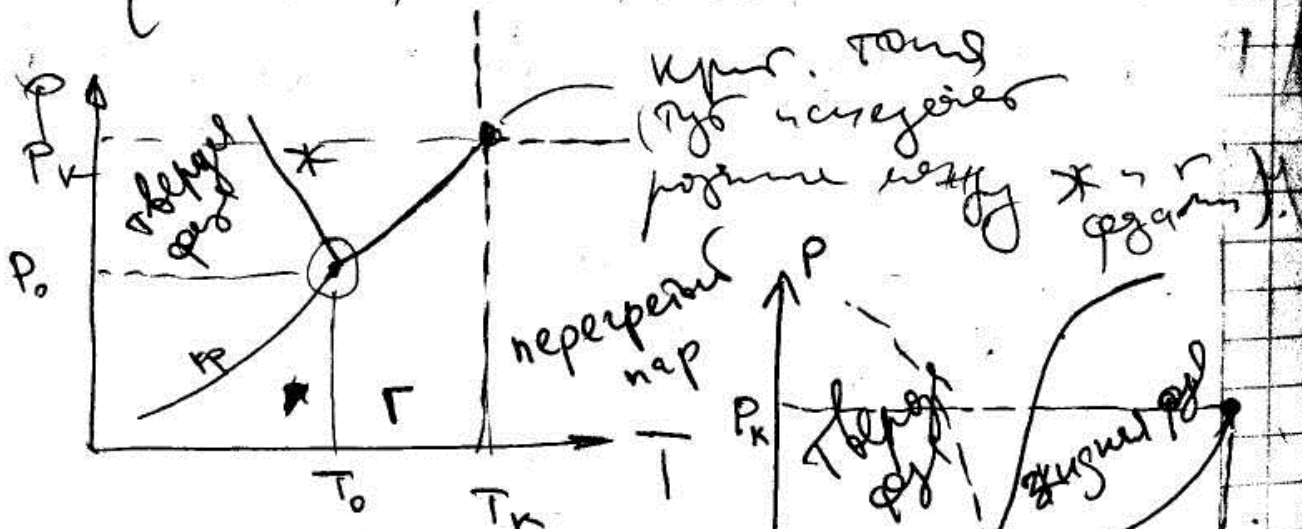 P
P_K
P_0
твердая
фаза
ж
кр
Г
T_0
T_K
T
крит. точка
(тут исчезает
различие между ж и г
фазами).
перегретый
пар
P
P_K
тверд
фаза
жидкая фаза